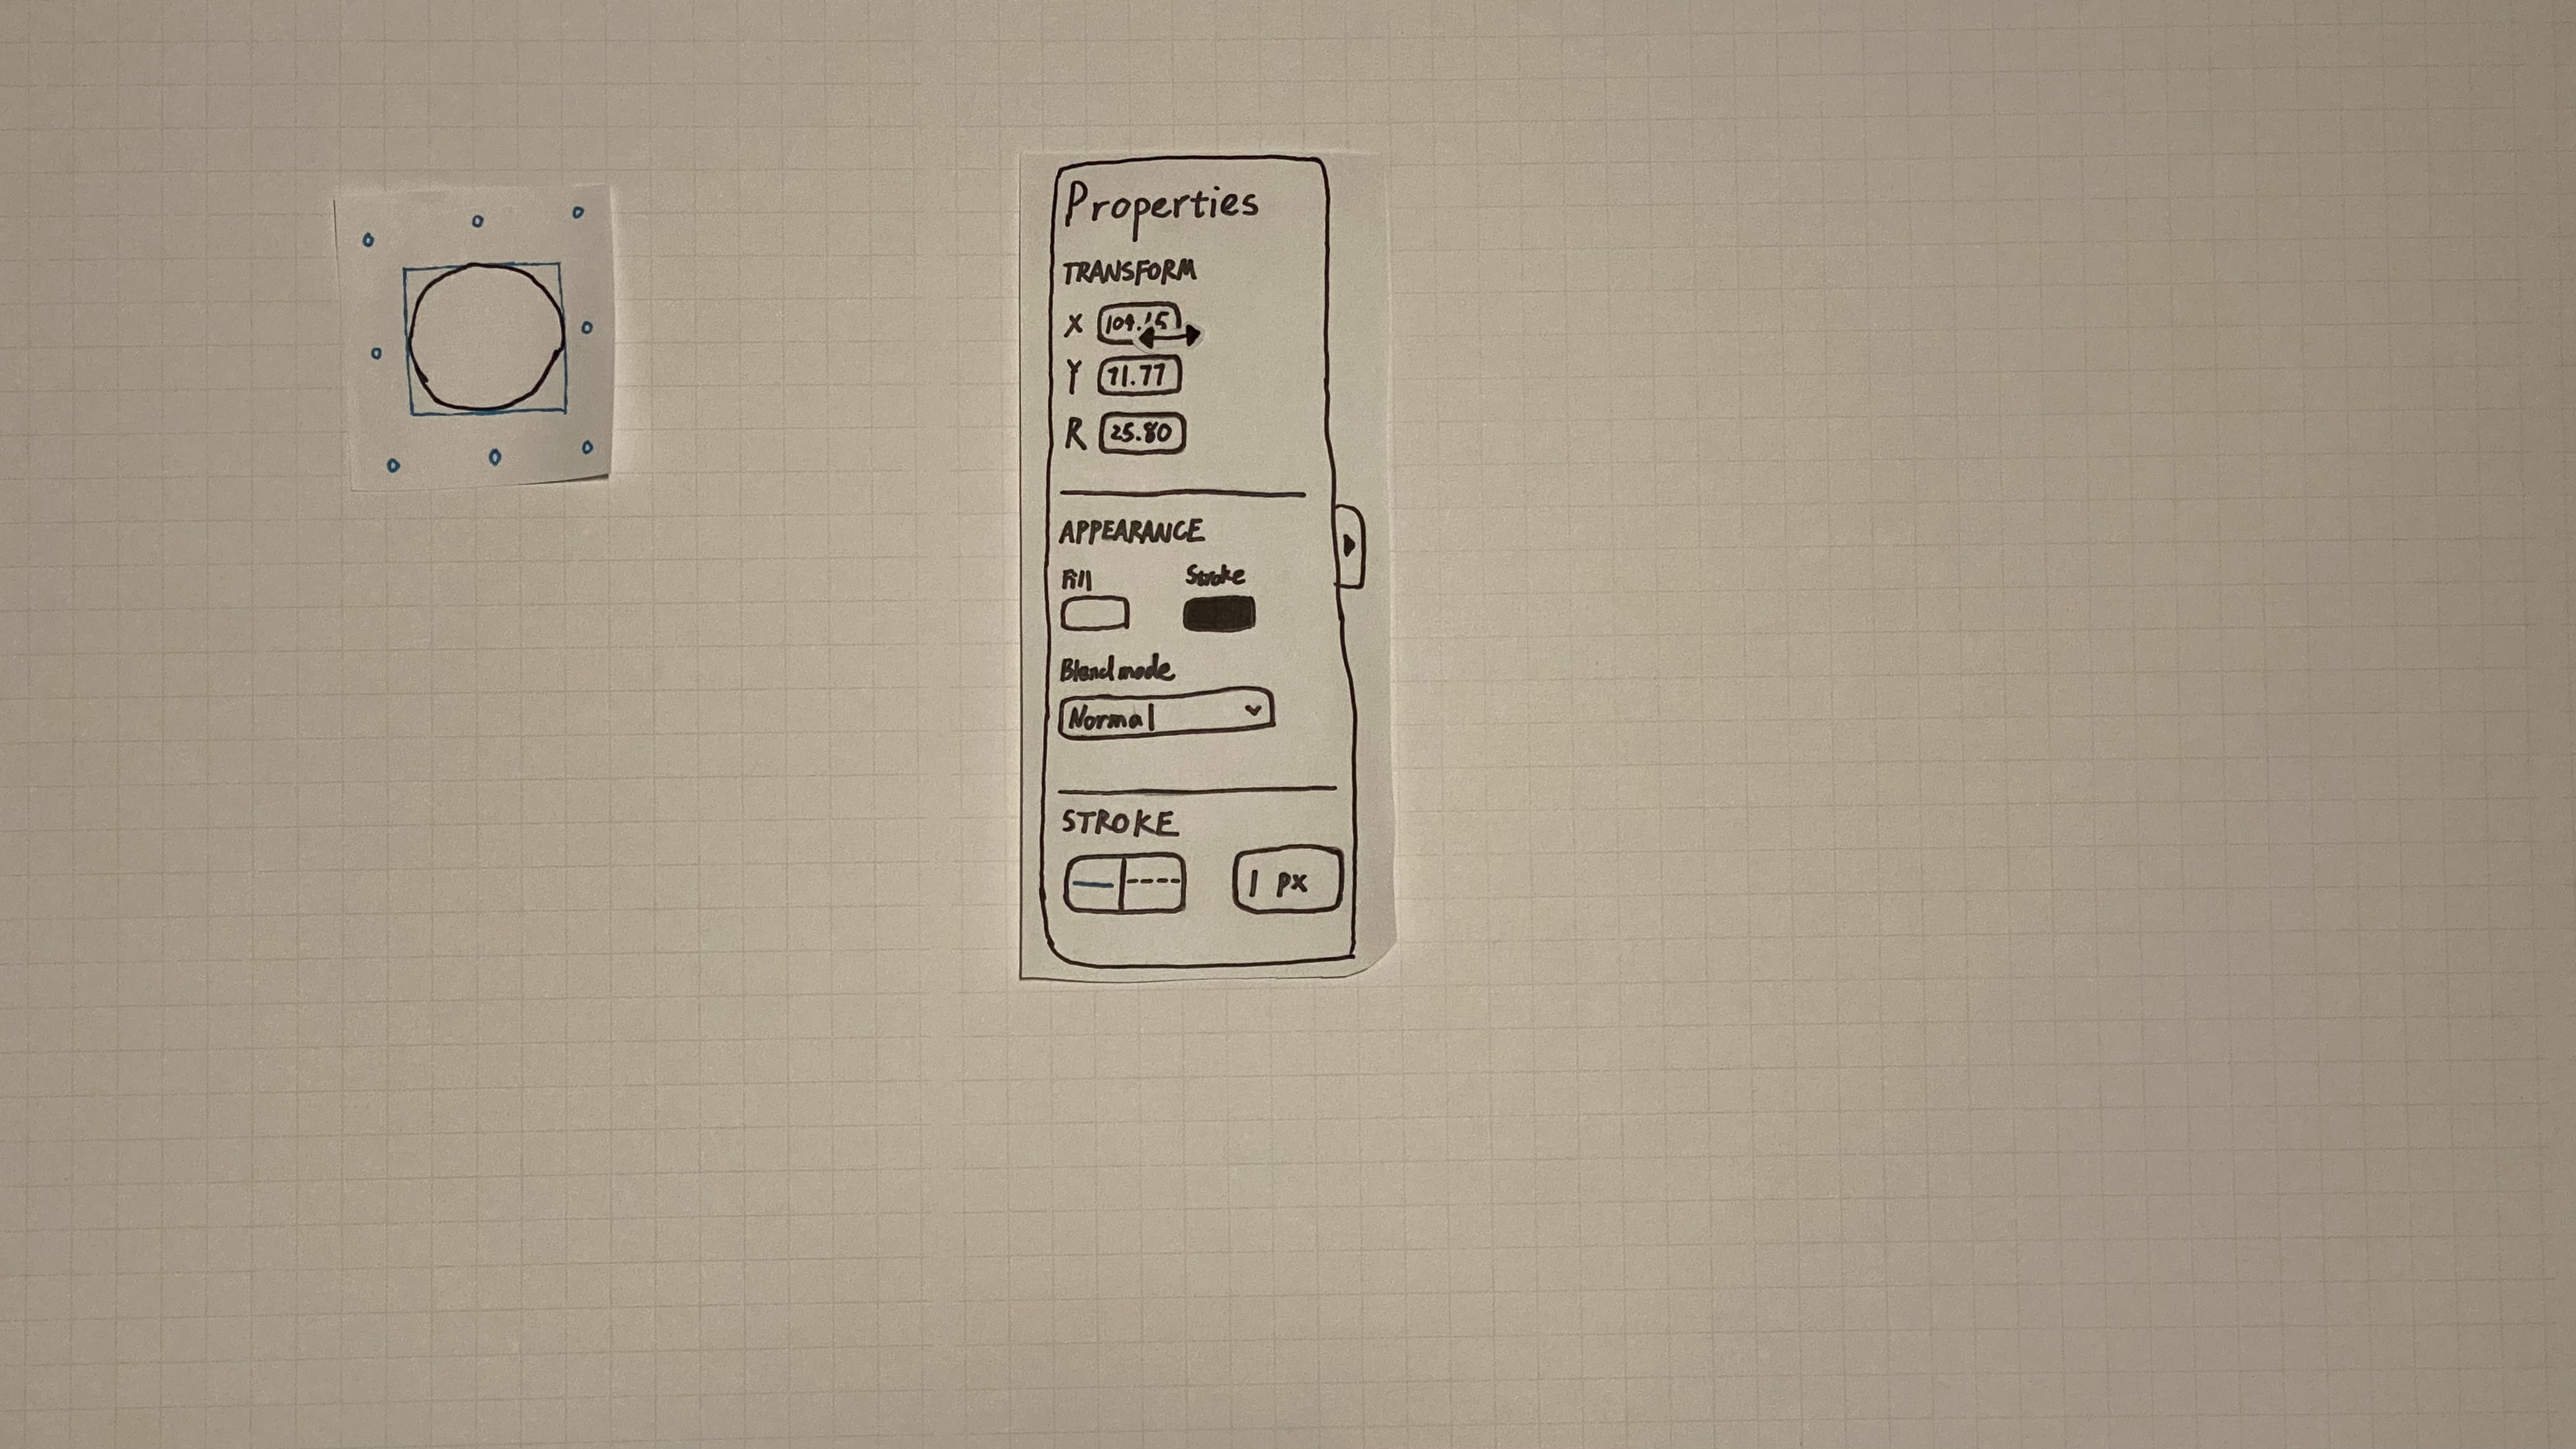 Properties
TRANSFORM
X 109.15
Y 71.77
R 25.80
APPEARANCE
Fill Stroke
Blend mode
Normal
STROKE
1 px